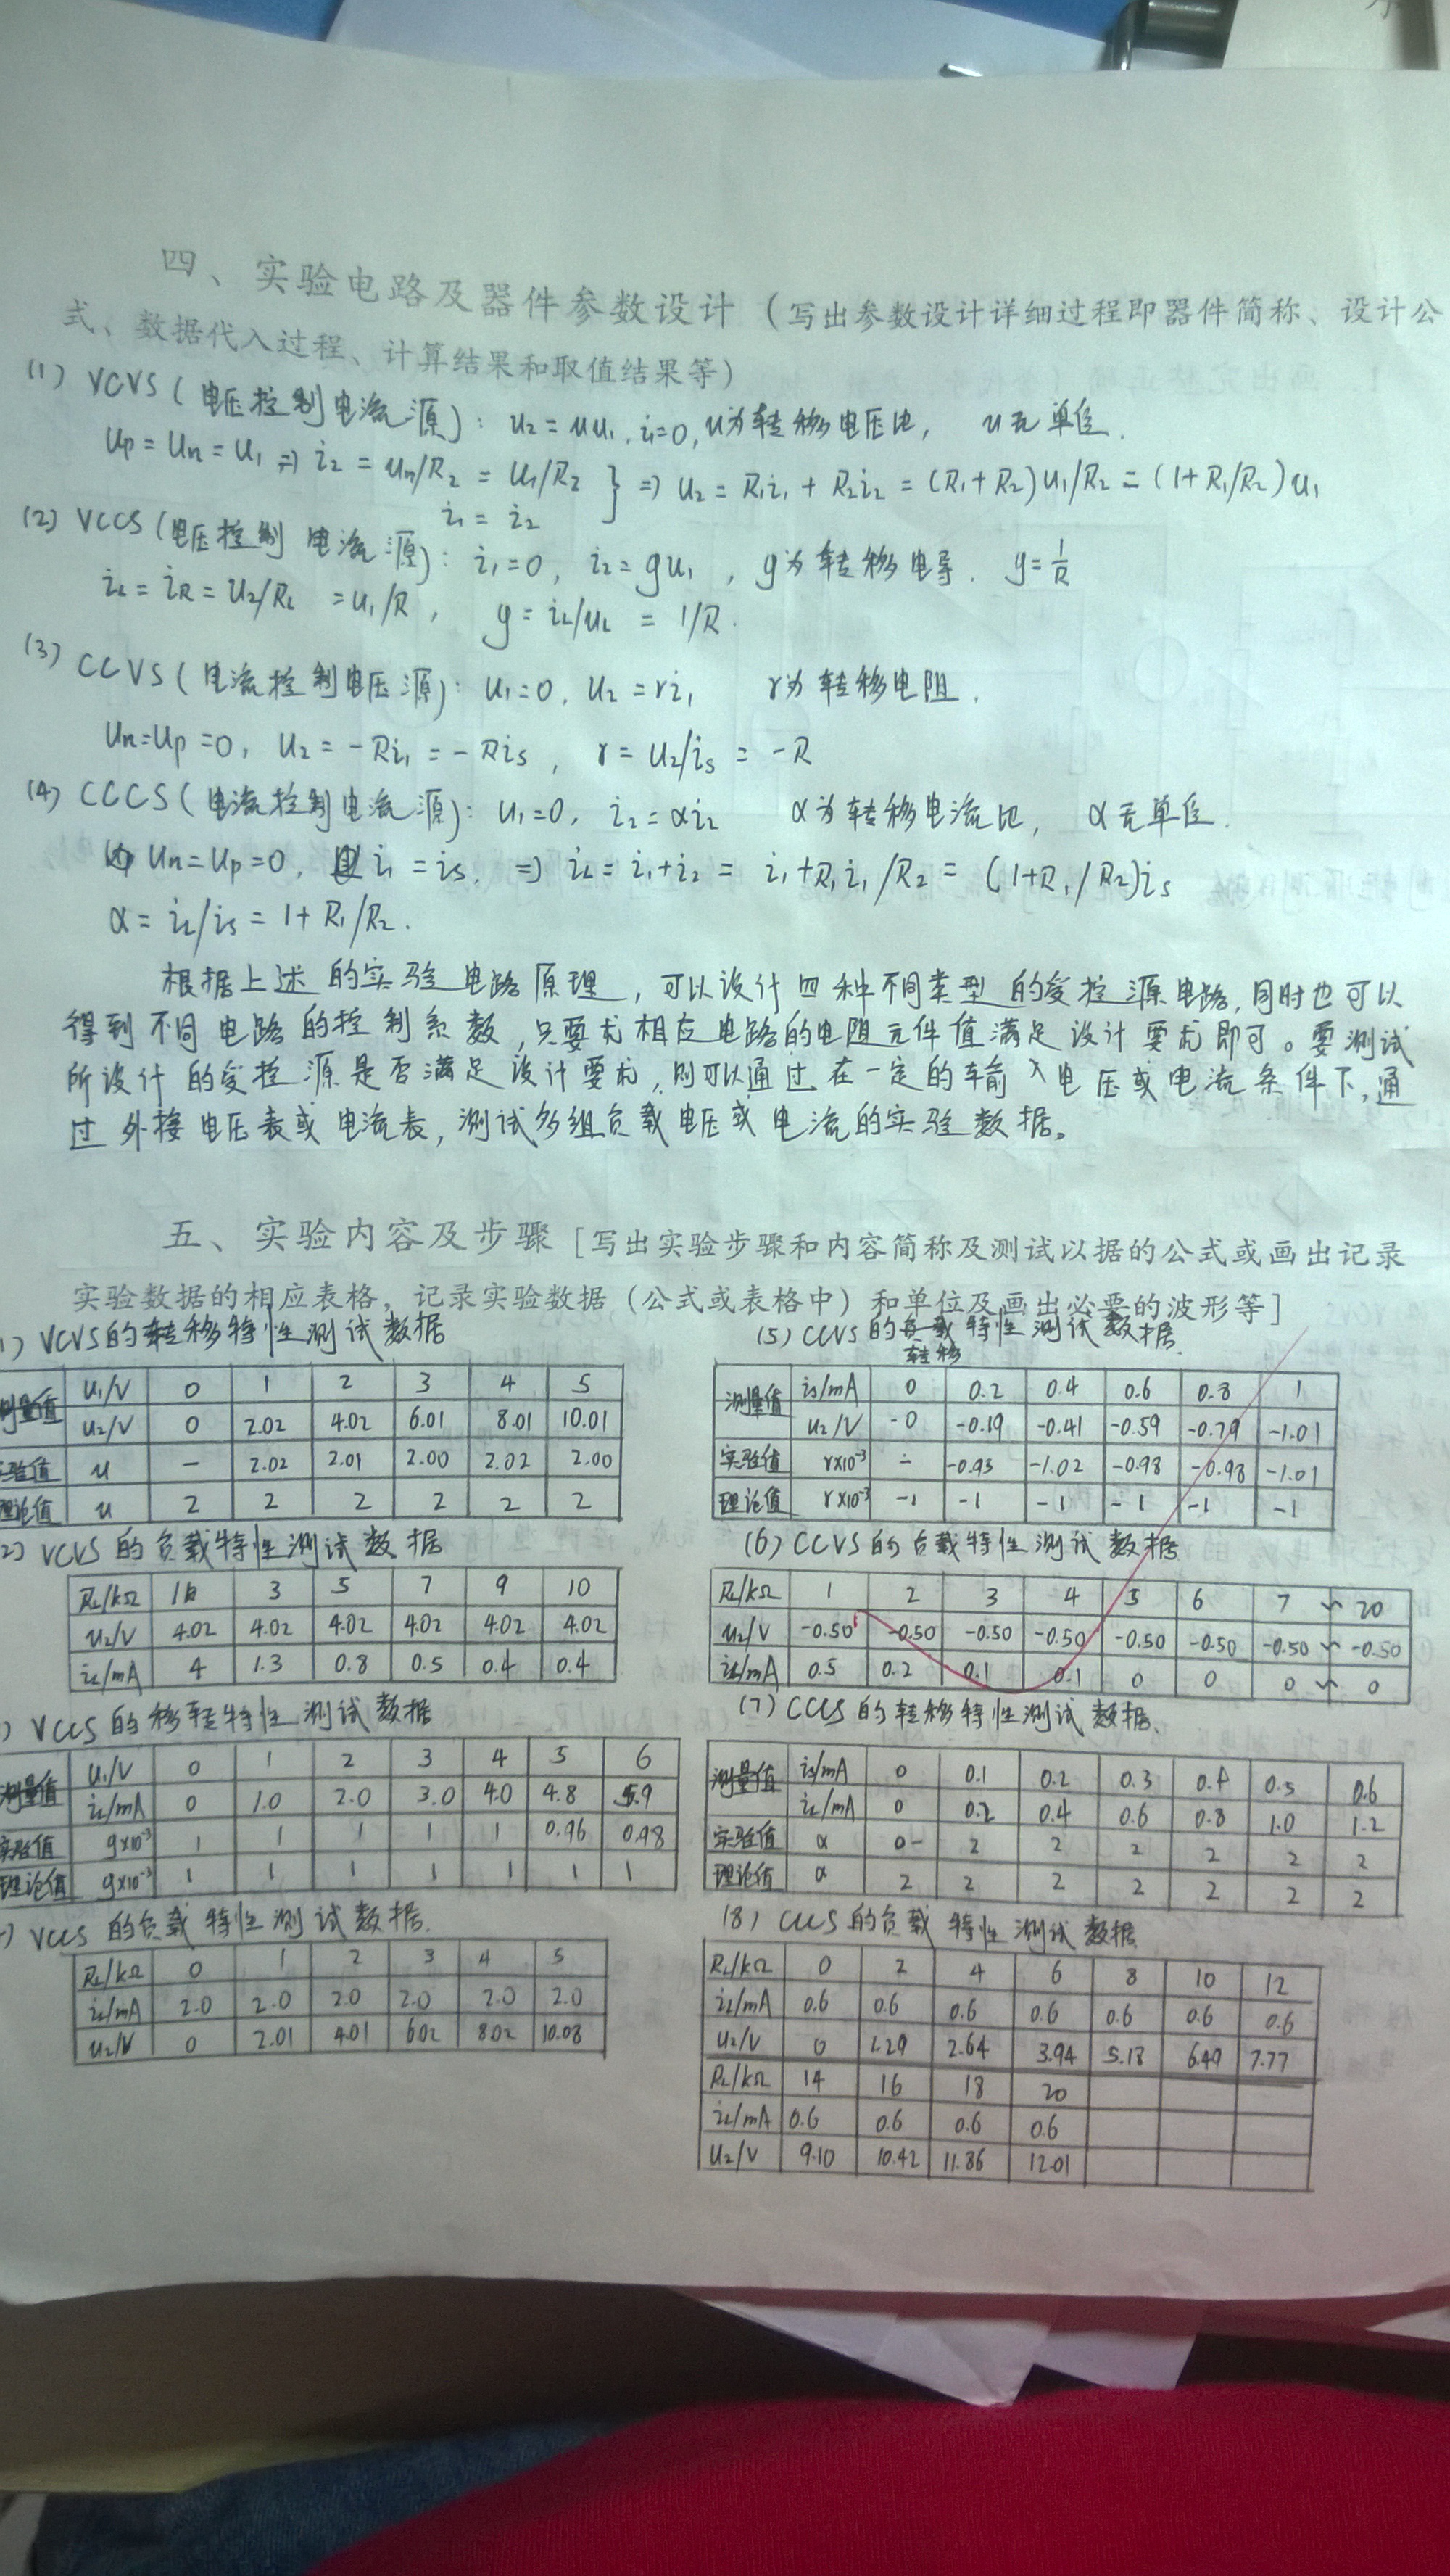 四、实验电路及器件参数设计（写出参数设计详细过程即器件简称、设计公
式、数据代入过程、计算结果和取值结果等）
(1) VCVS(电压控制电流源): u₂=uu₁, i₁=0, u为转移电压比, u无单位.
Up=Un=U₁⇒i₂=Un/R₂=U₁/R₂ } ⇒ U₂=R₁i₁+R₂i₂=(R₁+R₂)U₁/R₂=(1+R₁/R₂)U₁
i₁=i₂
(2) VCCS(电压控制电流源): i₁=0, i₂=gu₁, g为转移电导. g=1/R
i_L=i_R=U₂/R_L=U₁/R, g=i_L/u_L=1/R.
(3) CCVS(电流控制电压源): U₁=0, U₂=ri₁ r为转移电阻.
Un=Up=0, U₂=-Ri₁=-Ris, r=U₂/is=-R
(4) CCCS(电流控制电流源): U₁=0, i₂=αi₂ α为转移电流比, α无单位.
Un=Up=0, i₁=is, ⇒ i_L=i₁+i₂=i₁+R₁i₁/R₂=(1+R₁/R₂)is
α=i_L/is=1+R₁/R₂.
根据上述的实验电路原理,可以设计四种不同类型的受控源电路,同时也可以
得到不同电路的控制系数,只要求相应电路的电阻元件值满足设计要求即可。要测试
所设计的受控源是否满足设计要求,则可以通过在一定的输入电压或电流条件下,通
过外接电压表或电流表,测试多组负载电压或电流的实验数据。
五、实验内容及步骤[写出实验步骤和内容简称及测试以据的公式或画出记录
实验数据的相应表格，记录实验数据（公式或表格中）和单位及画出必要的波形等]
1) VCVS的转移特性测试数据
测量值 U₁/V 0 1 2 3 4 5
U₂/V 0 2.02 4.02 6.01 8.01 10.01
实验值 u - 2.02 2.01 2.00 2.02 2.00
理论值 u 2 2 2 2 2 2
2) VCVS的负载特性测试数据
R_L/kΩ 3 5 7 9 10
U₂/V 4.02 4.02 4.02 4.02 4.02 4.02
i_L/mA 4 1.3 0.8 0.5 0.4 0.4
) VCCS的移转特性测试数据
测量值 U₁/V 0 1 2 3 4 5 6
i_L/mA 0 1.0 2.0 3.0 4.0 4.8 5.9
实验值 g×10⁻³ 1 1 1 1 1 0.96 0.98
理论值 g×10⁻³ 1 1 1 1 1 1 1
) VCCS的负载特性测试数据.
R_L/kΩ 0 1 2 3 4 5
i_L/mA 2.0 2.0 2.0 2.0 2.0 2.0
U₂/V 0 2.01 4.01 6.02 8.02 10.03
(5) CCVS的负载特性测试数据.
转移
测量值 is/mA 0 0.2 0.4 0.6 0.8 1
U₂/V -0 -0.19 -0.41 -0.59 -0.79 -1.01
实验值 r×10⁻³ - -0.95 -1.02 -0.98 -0.98 -1.01
理论值 r×10⁻³ -1 -1 -1 -1 -1 -1
(6) CCVS的负载特性测试数据
R_L/kΩ 1 2 3 4 5 6 7 ~ 20
U₂/V -0.50 -0.50 -0.50 -0.50 -0.50 -0.50 -0.50 ~ -0.50
i_L/mA 0.5 0.2 0.1 0.1 0 0 0 ~ 0
(7) CCCS的转移特性测试数据.
测量值 is/mA 0 0.1 0.2 0.3 0.4 0.5 0.6
i_L/mA 0 0.2 0.4 0.6 0.8 1.0 1.2
实验值 α 0- 2 2 2 2 2 2
理论值 α 2 2 2 2 2 2 2
(8) CCCS的负载特性测试数据
R_L/kΩ 0 2 4 6 8 10 12
i_L/mA 0.6 0.6 0.6 0.6 0.6 0.6 0.6
U₂/V 0 1.29 2.64 3.94 5.18 6.49 7.77
R_L/kΩ 14 16 18 20
i_L/mA 0.6 0.6 0.6 0.6
U₂/V 9.10 10.42 11.86 12.01